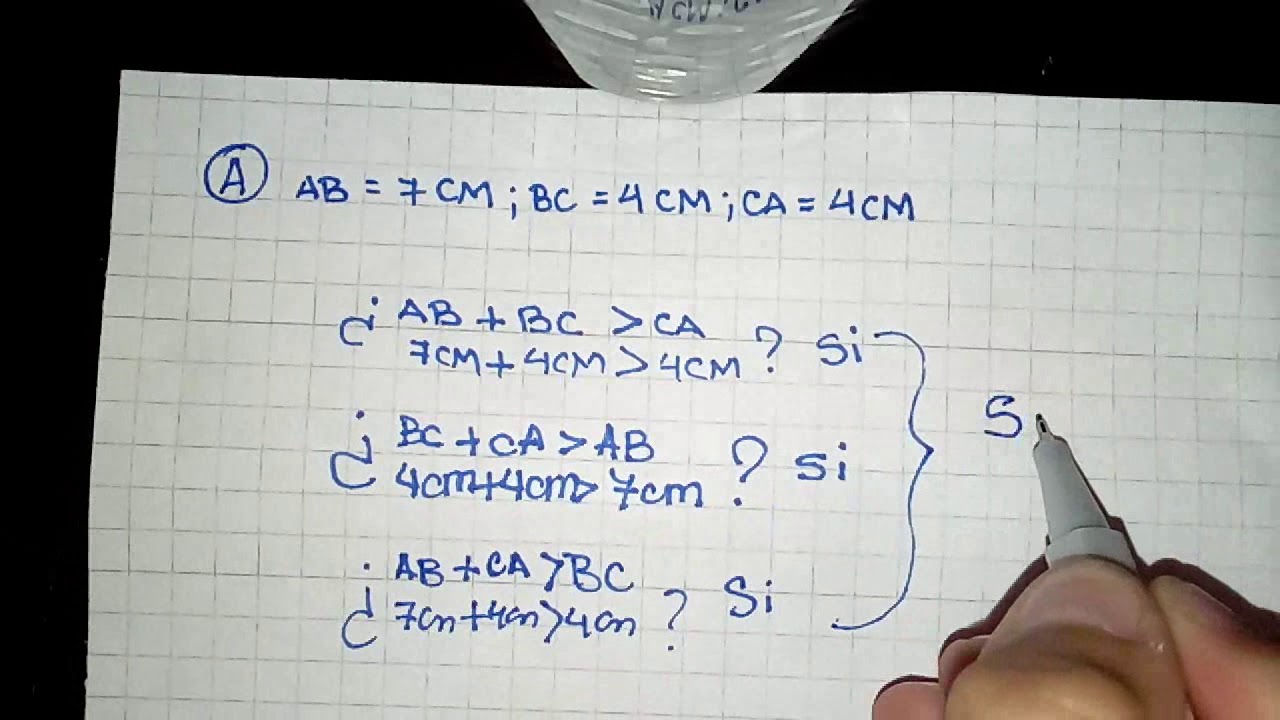 A AB = 7 CM ; BC = 4 CM ; CA = 4 CM
¿ AB + BC > CA
7CM + 4CM > 4CM ? Si
¿ BC + CA > AB
4cm+4cm> 7cm ? Si
¿ AB + CA > BC
7cm+4cm>4cm ? Si
S